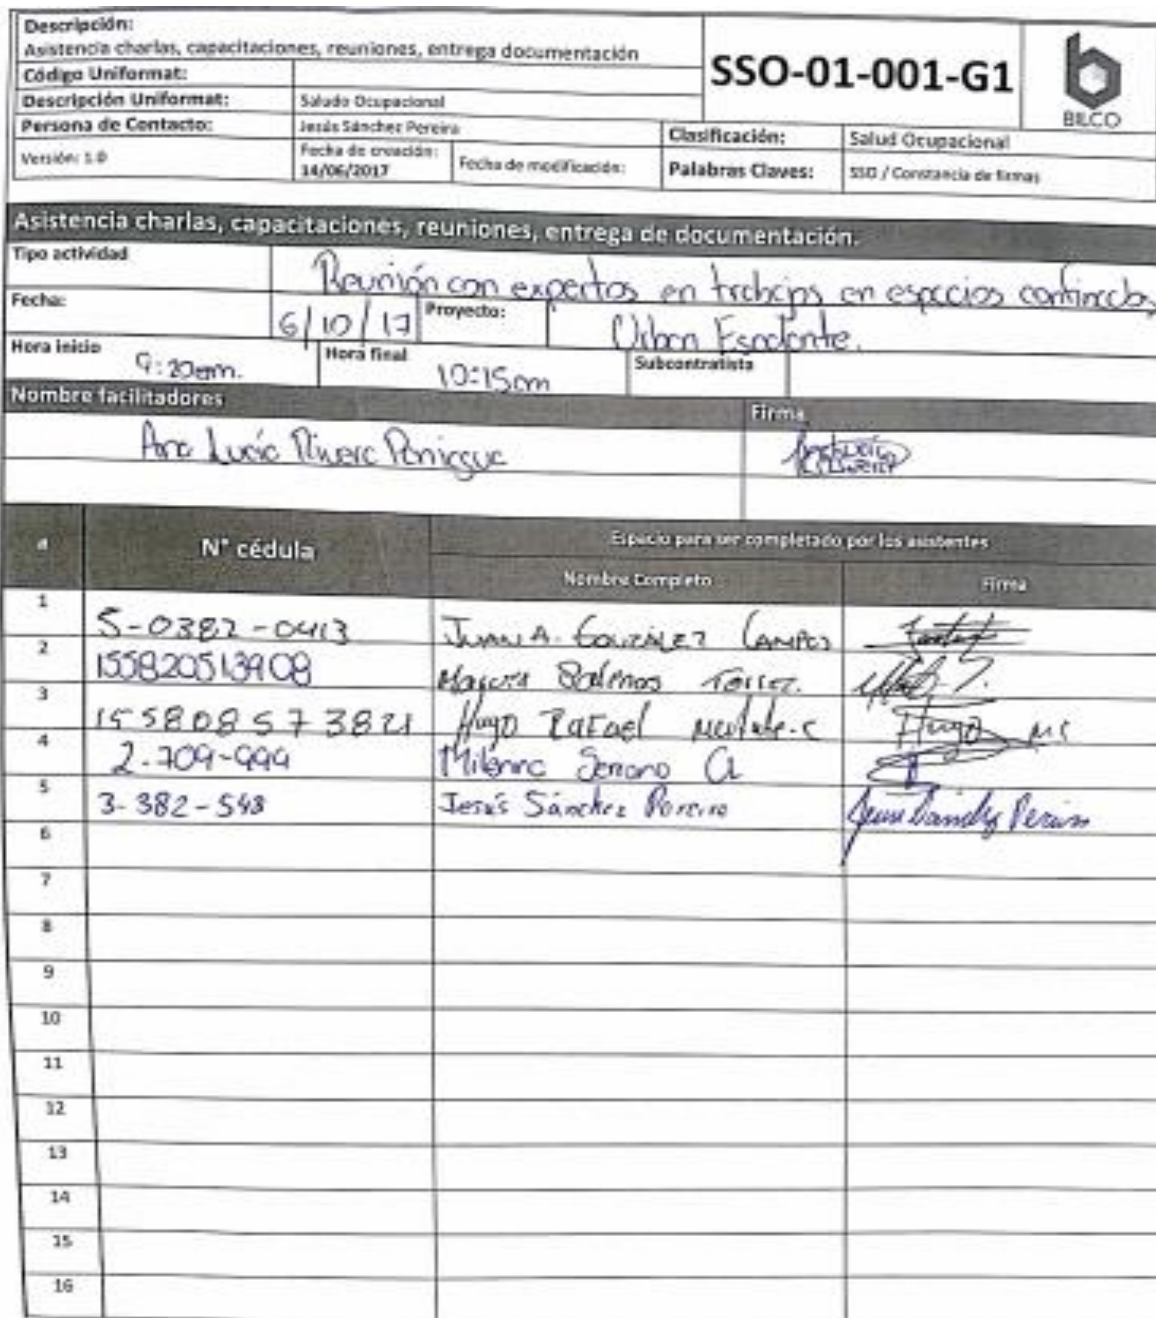 Descripción:
Asistencia charlas, capacitaciones, reuniones, entrega documentación
Código Uniformat:
Descripción Uniformat: Saludo Ocupacional
Persona de Contacto: Jesús Sánchez Pereira
Versión: 1.0 Fecha de creación: 14/06/2017 Fecha de modificación:
SSO-01-001-G1
BILCO
Clasificación: Salud Ocupacional
Palabras Claves: SSO / Constancia de firmas
Asistencia charlas, capacitaciones, reuniones, entrega de documentación.
Tipo actividad Reunión con expertos en trabajos en espacios confinados
Fecha: 6/10/17 Proyecto: Urban Escalante.
Hora inicio 9:20am. Hora final 10:15am Subcontratista
Nombre facilitadores Firma
Ana Lucía Rivera Paniagua
# N° cédula Espacio para ser completado por los asistentes
Nombre Completo Firma
1 5-0382-0413 Juan A. González Campos
2 155820513908 Torrez.
3 155808573821 Hugo Rafael Hugo MC
4 2-709-999 Milenna Serrano
5 3-382-543 Jesús Sánchez Pereira
6
7
8
9
10
11
12
13
14
15
16